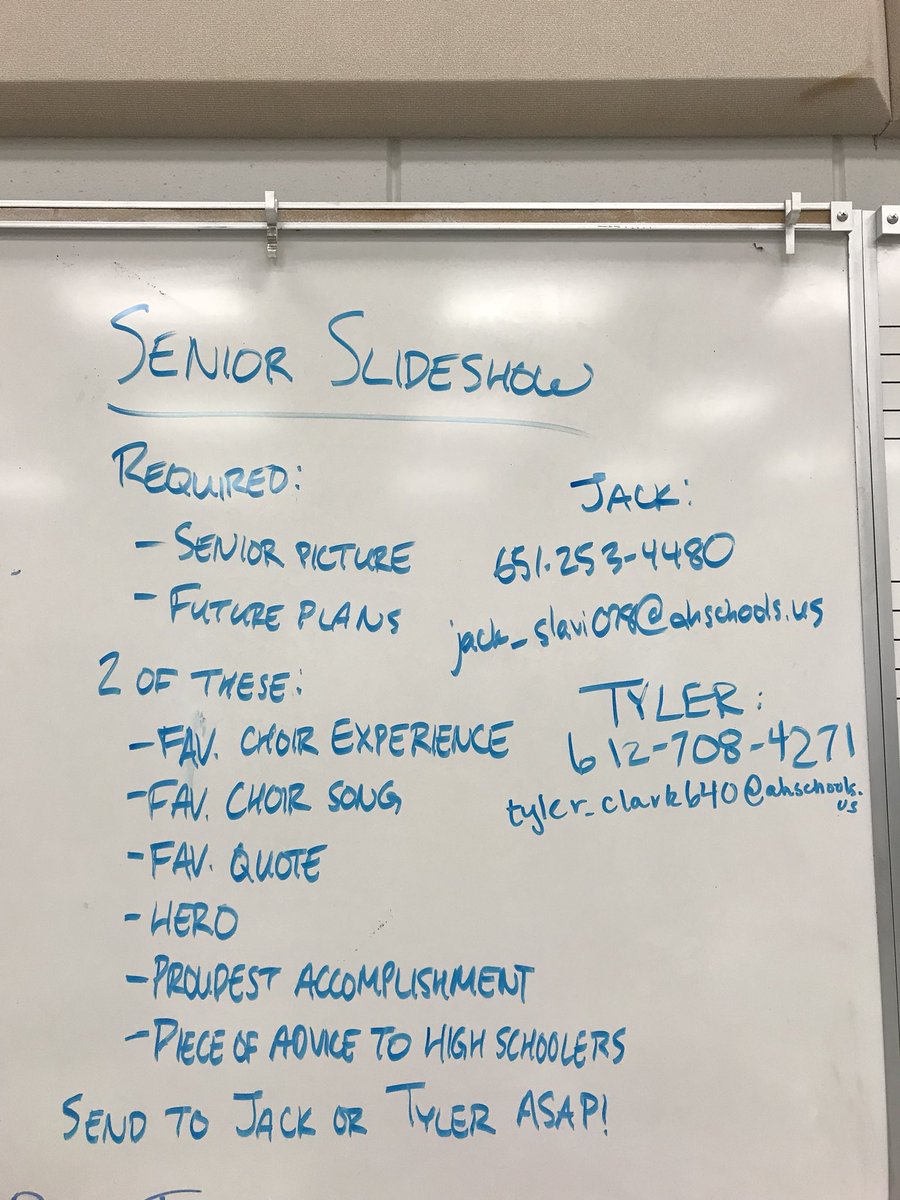 SENIOR SLIDESHOW
REQUIRED:
- SENIOR PICTURE
- FUTURE PLANS
2 OF THESE:
- FAV. CHOIR EXPERIENCE
- FAV. CHOIR SONG
- FAV. QUOTE
- HERO
- PROUDEST ACCOMPLISHMENT
- PIECE OF ADVICE TO HIGH SCHOOLERS
SEND TO JACK OR TYLER ASAP!
JACK:
651.253-4480
jack_slavi078@ahschools.us
TYLER:
612-708-4271
tyler_clark640@ahschools.
us